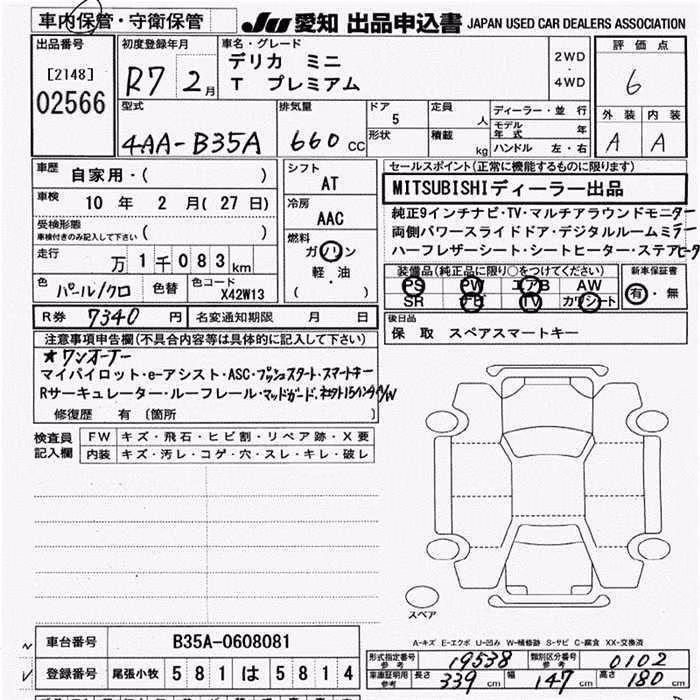 車内保管・守衛保管
JU 愛知 出品申込書 JAPAN USED CAR DEALERS ASSOCIATION
出品番号
[2148]
02566
初度登録年月
R7 2月
車名・グレード
デリカ ミニ
T プレミアム
2WD
・
4WD
評価点
6
外装 内装
A A
型式
4AA-B35A
排気量
660 CC
ドア
5
形状
定員
人
積載
kg
ディーラー・並行
モデル年式 年
ハンドル 左・右
車歴
自家用・( )
車検
10年 2月(27日)
受検形態
車検付きのみ記入して下さい ( )
走行
万1千083km
色 パール/クロ 色替 色コード X42W13
シフト
AT
冷房
AAC
燃料
ガソリン
軽・油
( )
セールスポイント(正常に機能するものに限ります)
MITSUBISHIディーラー出品
純正9インチナビ・TV・マルチアラウンドモニター
両側パワースライドドア・デジタルルームミラー
ハーフレザーシート・シートヒーター・ステアヒータ
装備品(純正品に限り○をつけてください)
PS PW エアB AW
SR ナビ TV カワシート
新車保証書
有・無
R券 7340円 名変通知期限 月 日
後日品
保 取 スペアスマートキー
注意事項申告欄(不具合内容等は具体的に記入して下さい)
★ワンオーナー
マイパイロット・e-アシスト・ASC・プッシュスタート・スマートキー
Rサーキュレーター・ルーフレール・マッドガード・社外15インチAW
修復歴 有 〔箇所 〕
検査員記入欄
FW キズ・飛石・ヒビ割・リペア跡・X要
内装 キズ・汚レ・コゲ・穴・スレ・キレ・破レ
スペア
A-キズ E-エクボ U-凹み W-補修跡 S-サビ C-腐食 XX-交換済
車台番号 B35A-0608081
登録番号 尾張小牧 581 は 5814
形式指定番号 参考 19538 類別区分番号 参考 0102
車庫証明用 参考 長さ 339cm 幅 147cm 高さ 180cm